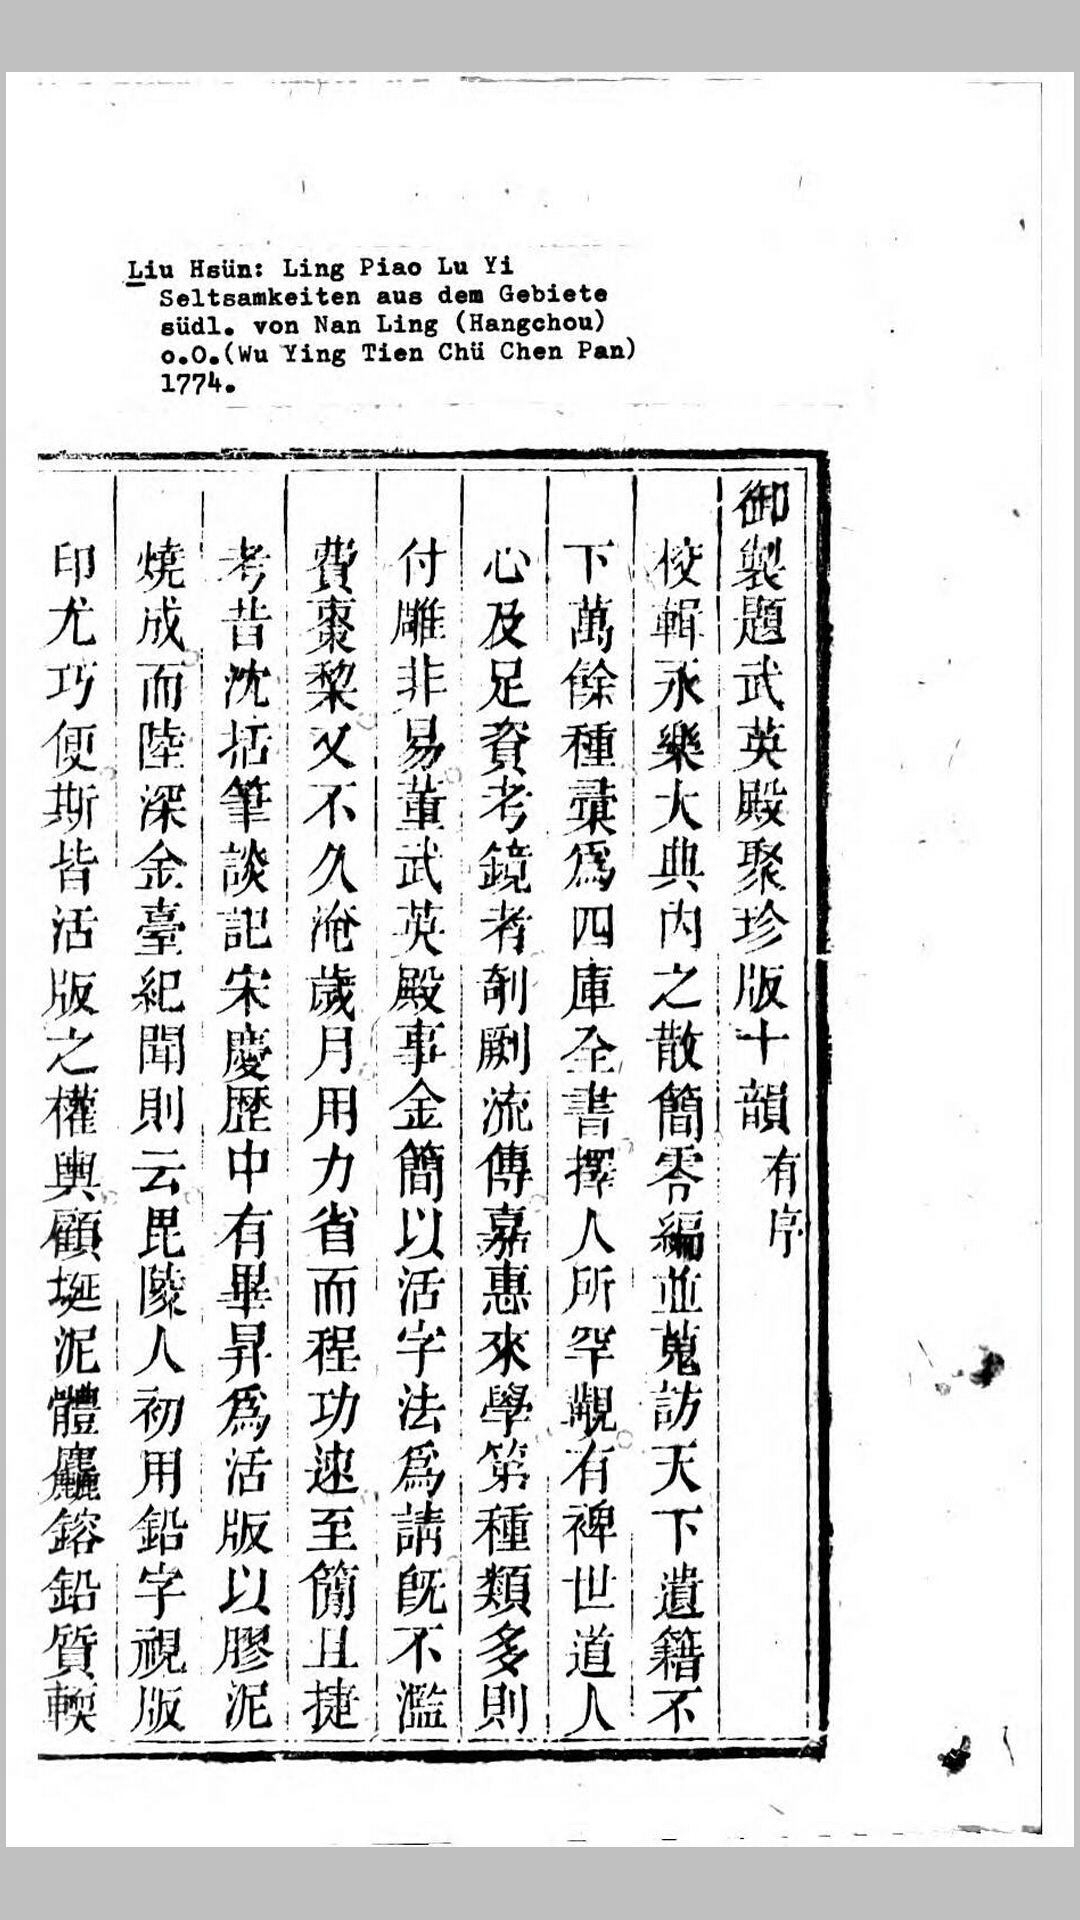 Liu Hsün: Ling Piao Lu Yi
Seltsamkeiten aus dem Gebiete
südl. von Nan Ling (Hangchou)
o.O.(Wu Ying Tien Chü Chen Pan)
1774.
御製題武英殿聚珍版十韻有序
校輯永樂大典內之散簡零編並蒐訪天下遺籍不
下萬餘種彚爲四庫全書擇人所罕覯有裨世道人
心及足資考鏡者剞劂流傳嘉惠來學第種類多則
付雕非易董武英殿事金簡以活字法爲請旣不濫
費棗棃又不久淹歲月用力省而程功速至簡且捷
考昔沈括筆談記宋慶歷中有畢昇爲活版以膠泥
燒成而陸深金臺紀聞則云毘陵人初用鉛字視版
印尤巧便斯皆活版之權輿顧埏泥體麤鎔鉛質輭